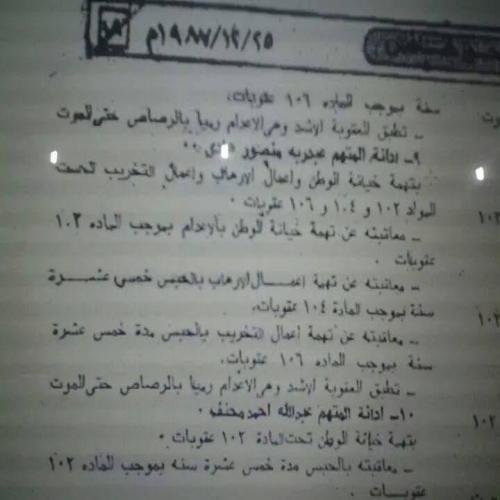 ١٩٨٧/١٢/٢٥م
سنة بموجب المادة ١٠٦ عقوبات.
ـ تطبق العقوبة الاشد وهى الاعدام رميا بالرصاص حتى الموت
٩ـ ادانة المتهم عبدربه منصور
بتهمة خيانة الوطن واعمال الارهاب واعمال التخريب تحت
المواد ١٠٢ و ١٠٤ و ١٠٦ عقوبات ٠
ـ معاقبته عن تهمة خيانة الوطن بالاعدام بموجب الماده ١٠٢
عقوبات ٠
ـ معاقبته عن تهمة اعمــال الارهاب بالحبس خمسى عشــرة
سنة بموجب المادة ١٠٤ عقوبات.
ـ معاقبته عن تهمة اعمال التخريب بالحبس مدة خمس عشرة
سنة بموجب الماده ١٠٦ عقوبات.
ـ تطبق العقوبة الاشد وهى الاعدام رميا بالرصاص حتى الموت
١٠ـ ادانة المتهم عبدالله احمد
بتهمة خيانة الوطن تحت المادة ١٠٢ عقوبات ٠
ـ معاقبته بالحبس مدة خمس عشرة سنه بموجب الماده ١٠٢
عقوبــات ٠
وت
١٠٢
١٠٢
١٠٢